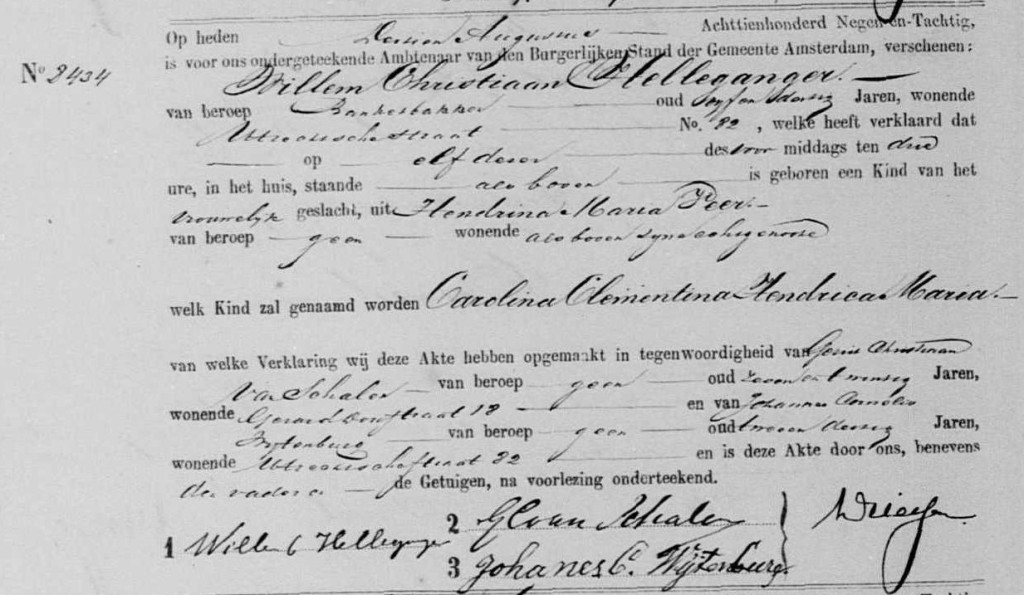 Op heden Augustus Achttienhonderd Negen-en-Tachtig,
is voor ons ondergeteekende Ambtenaar van den Burgerlijken Stand der Gemeente Amsterdam, verschenen:
No 3434 Willem Christiaan Helleganger.
van beroep Banketbakker oud vyf en dertig Jaren, wonende
Utrechtschestraat No. 82, welke heeft verklaard dat
op elf dezer des voor middags ten drie
ure, in het huis, staande als boven is geboren een Kind van het
vrouwelyk geslacht, uit Hendrina Maria Peer.
van beroep geen wonende als boven zyne echtgenoote
welk Kind zal genaamd worden Carolina Clementina Hendrica Maria.
van welke Verklaring wij deze Akte hebben opgemaakt in tegenwoordigheid van Christiaan
van Schalen van beroep geen oud zeven en twintig Jaren,
wonende Gerard Doustraat 18 en van Johannes Cornelis
Wytenburg van beroep geen oud twee en dertig Jaren,
wonende Utrechtschestraat 82 en is deze Akte door ons, benevens
den vader de Getuigen, na voorlezing onderteekend.
1 Willem C Helleganger
2 G C van Schalen
3 Johanes C. Wijtenburg.